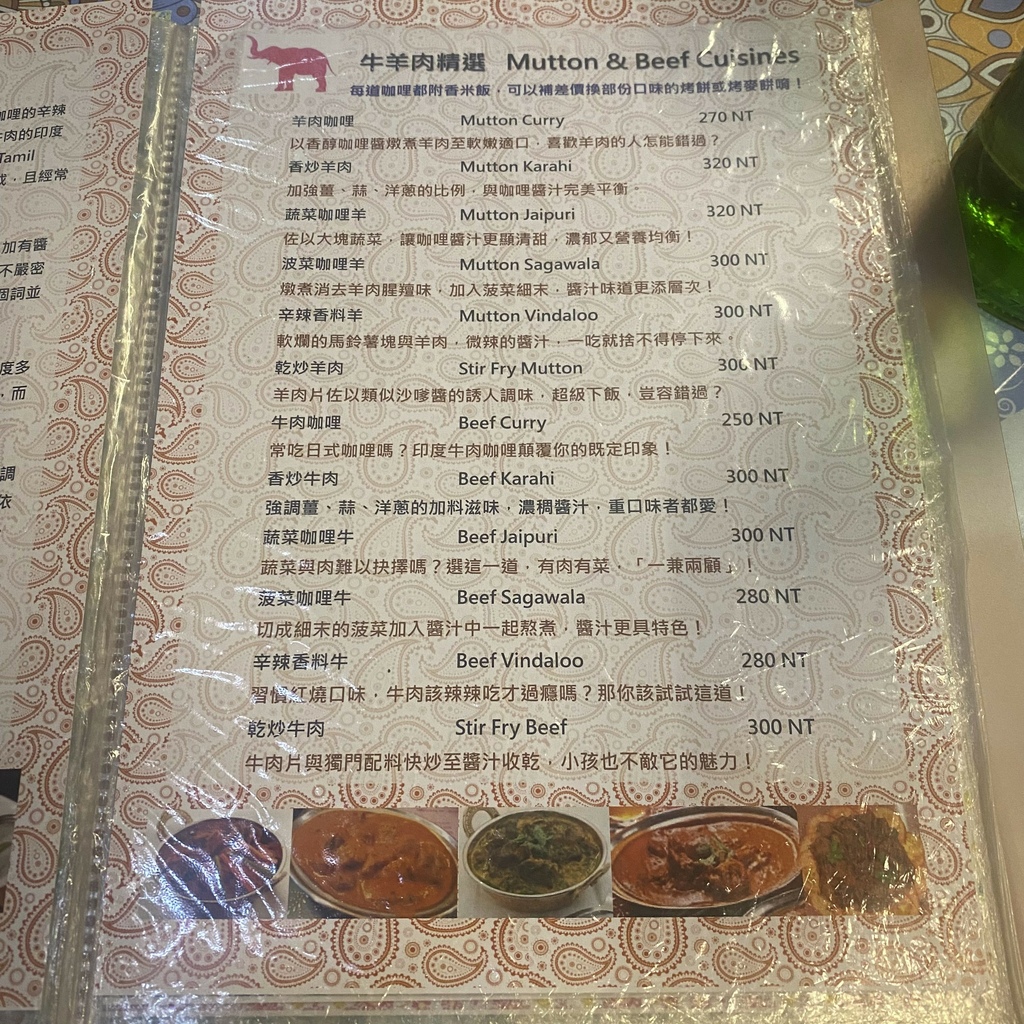 咖哩的辛辣
牛肉的印度
Tamil
，且經常
加有醬
不嚴密
個詞並
度多
，而
調
依
牛羊肉精選 Mutton & Beef Cuisines
每道咖哩都附香米飯，可以補差價換部份口味的烤餅或烤麥餅唷！
羊肉咖哩 Mutton Curry 270 NT
以香醇咖哩醬燉煮羊肉至軟嫩適口，喜歡羊肉的人怎能錯過？
香炒羊肉 Mutton Karahi 320 NT
加強薑、蒜、洋蔥的比例，與咖哩醬汁完美平衡。
蔬菜咖哩羊 Mutton Jaipuri 320 NT
佐以大塊蔬菜，讓咖哩醬汁更顯清甜，濃郁又營養均衡！
菠菜咖哩羊 Mutton Sagawala 300 NT
燉煮消去羊肉腥羶味，加入菠菜細末，醬汁味道更添層次！
辛辣香料羊 Mutton Vindaloo 300 NT
軟爛的馬鈴薯塊與羊肉，微辣的醬汁，一吃就捨不得停下來。
乾炒羊肉 Stir Fry Mutton 300 NT
羊肉片佐以類似沙嗲醬的誘人調味，超級下飯，豈容錯過？
牛肉咖哩 Beef Curry 250 NT
常吃日式咖哩嗎？印度牛肉咖哩顛覆你的既定印象！
香炒牛肉 Beef Karahi 300 NT
強調薑、蒜、洋蔥的加料滋味，濃稠醬汁，重口味者都愛！
蔬菜咖哩牛 Beef Jaipuri 300 NT
蔬菜與肉難以抉擇嗎？選這一道，有肉有菜，「一兼兩顧」！
菠菜咖哩牛 Beef Sagawala 280 NT
切成細末的菠菜加入醬汁中一起熬煮，醬汁更具特色！
辛辣香料牛 Beef Vindaloo 280 NT
習慣紅燒口味，牛肉該辣辣吃才過癮嗎？那你該試試這道！
乾炒牛肉 Stir Fry Beef 300 NT
牛肉片與獨門配料快炒至醬汁收乾，小孩也不敵它的魅力！